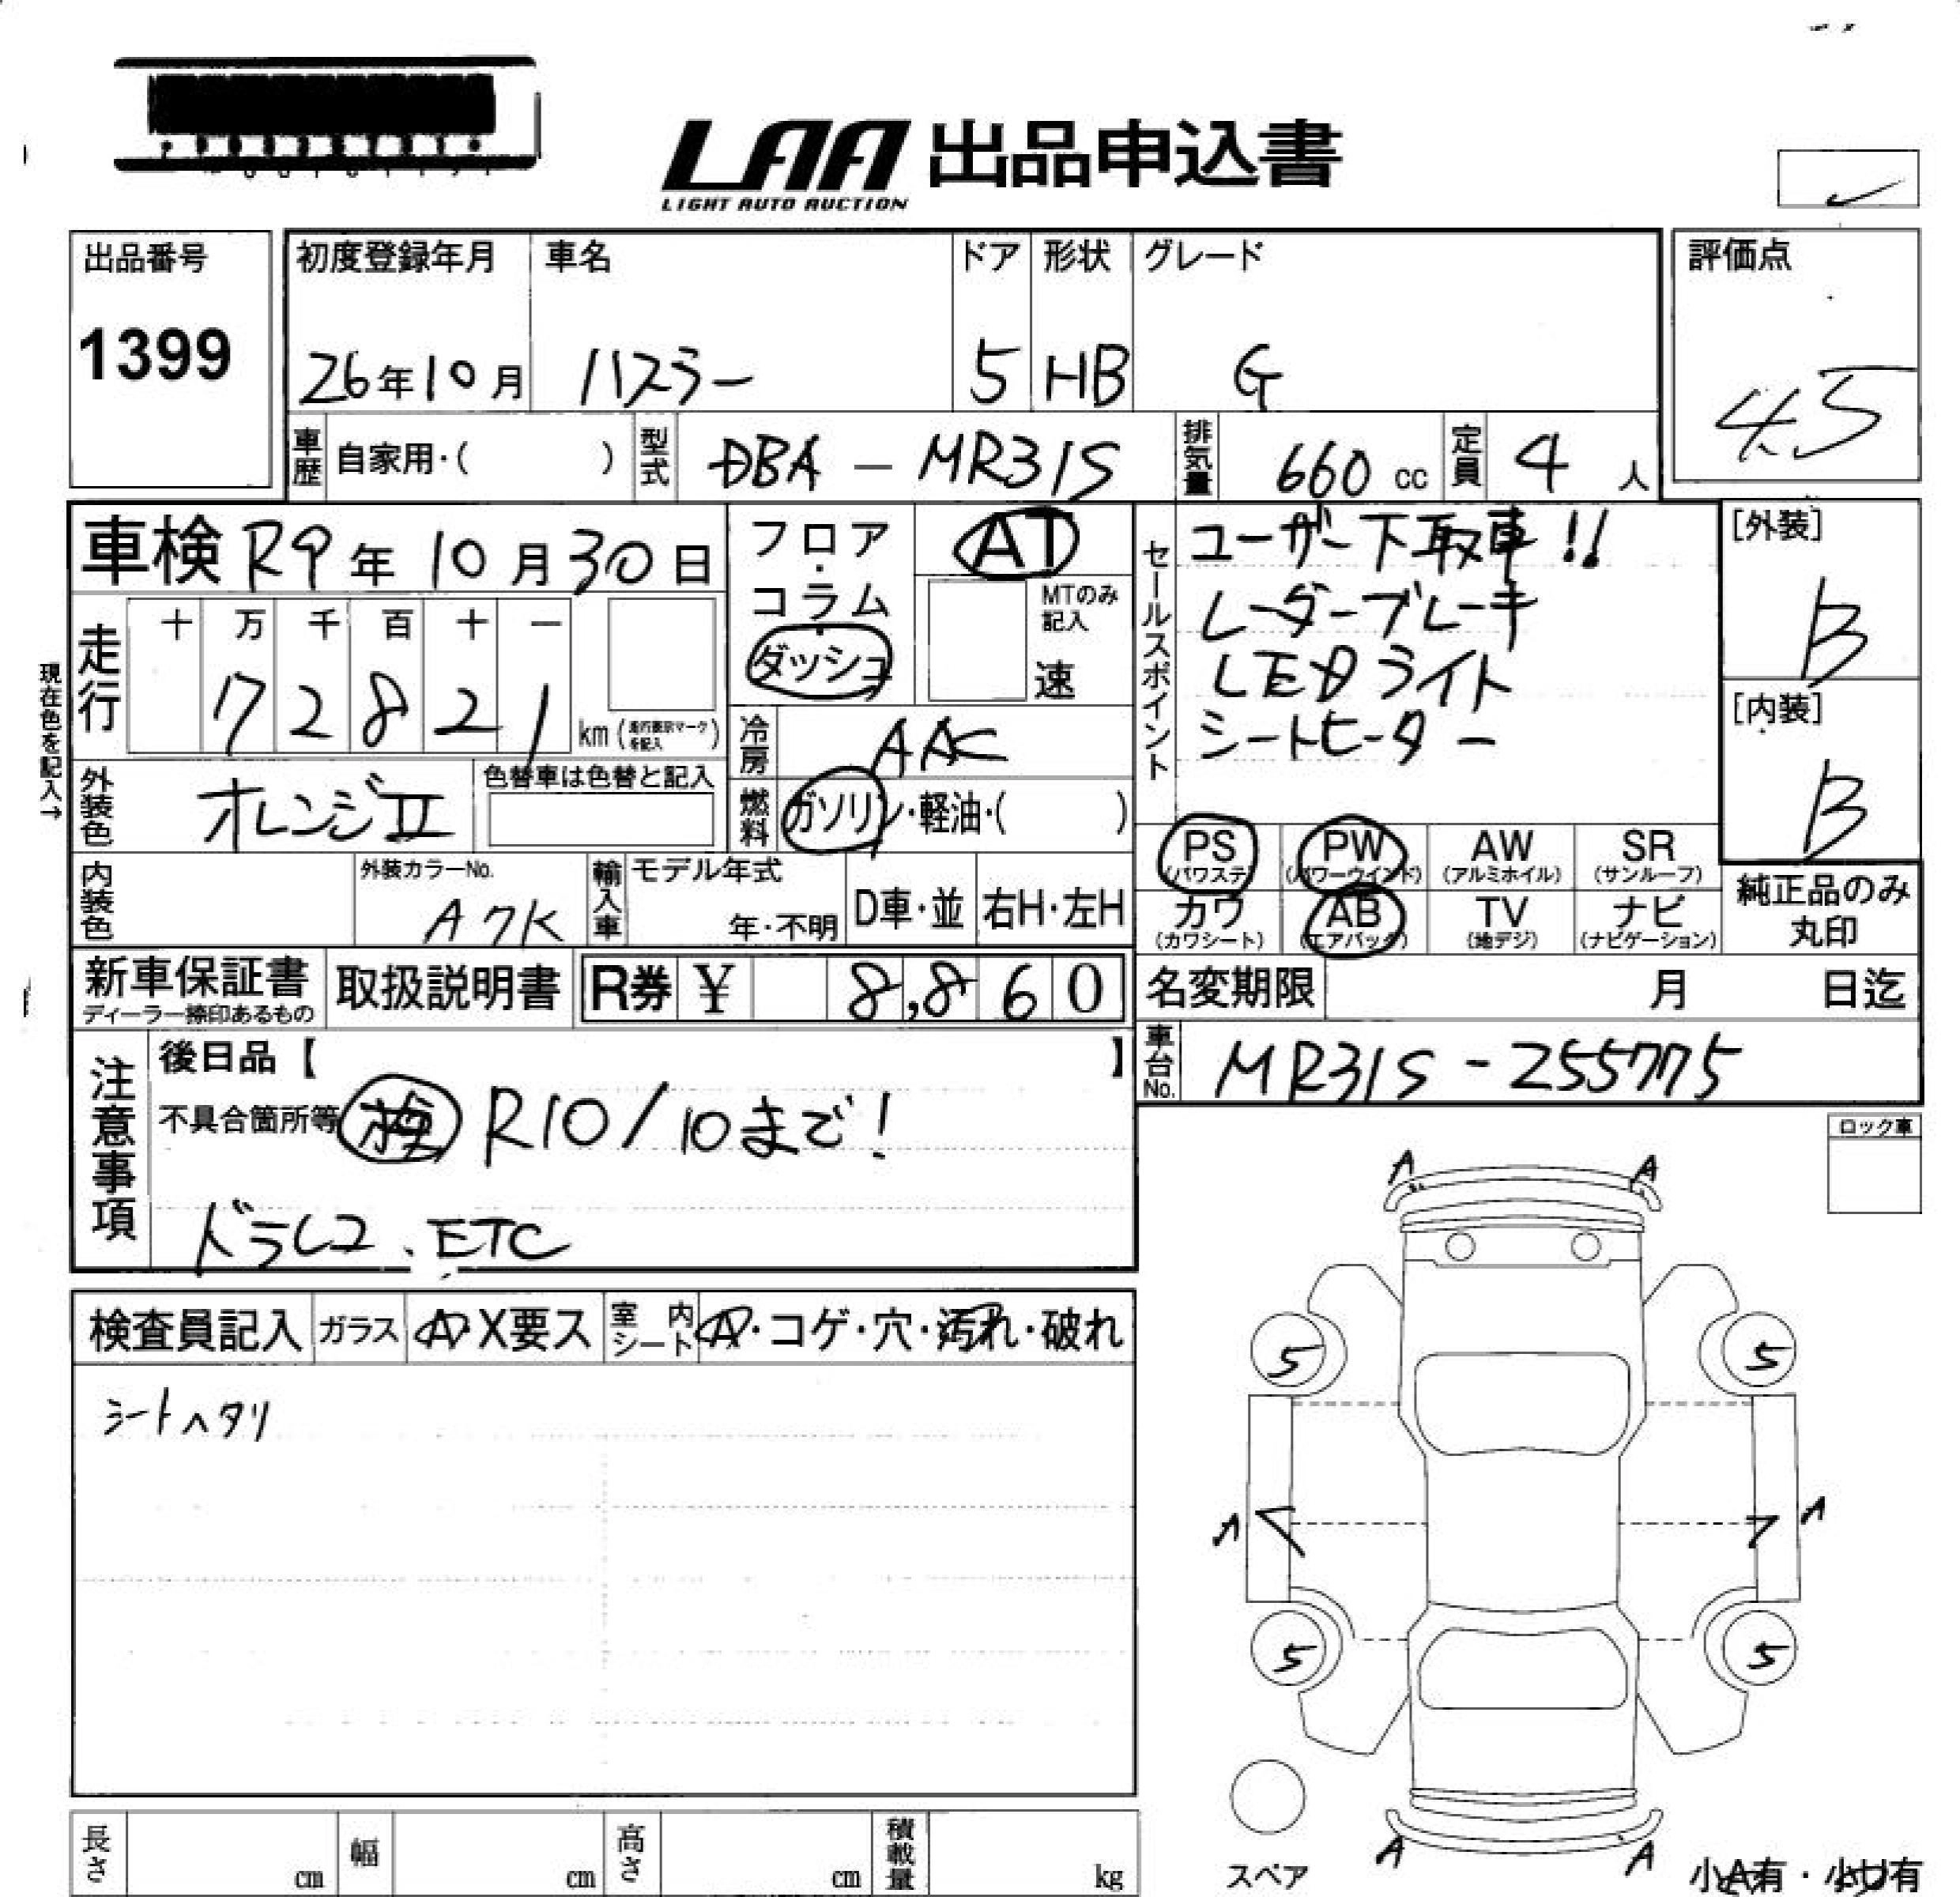 LAA 出品申込書
LIGHT AUTO AUCTION
出品番号
1399
初度登録年月
26年10月
車名
ハスラー
ドア
5
形状
HB
グレード
G
評価点
4.5
車歴 自家用・( )
型式 DBA - MR31S
排気量 660 cc
定員 4 人
車検 R9年 10月 30日
フロア・コラム・ダッシュ
AT
MTのみ記入
速
現在色を記入→
走行
十 万 千 百 十 一
7 2 8 2 1 km
外装色 オレンジII
色替車は色替と記入
冷房 AAC
燃料 ガソリン・軽油・( )
内装色
外装カラーNo.
A7K
輸入車
モデル年式
年・不明
D車・並
右H・左H
セールスポイント
ユーザー下取車!!
レーダーブレーキ
LEDライト
シートヒーター
[外装]
B
[内装]
B
PS (パワステ)
PW (パワーウインド)
AW (アルミホイル)
SR (サンルーフ)
カワ (カワシート)
AB (エアバッグ)
TV (地デジ)
ナビ (ナビゲーション)
純正品のみ
丸印
新車保証書
ディーラー捺印あるもの
取扱説明書
R券 ¥ 8,860
名変期限 月 日迄
車台No. MR31S-255775
注意事項
後日品【 】
不具合箇所等 R10/10まで!
ドラレコ、ETC
ロック車
検査員記入
ガラス A・X要ス
室内シート A・コゲ・穴・汚れ・破れ
シートヘタリ
A A
5 5
A A
5 5
A A
スペア
小A有・小U有
長さ cm
幅 cm
高さ cm
積載量 kg